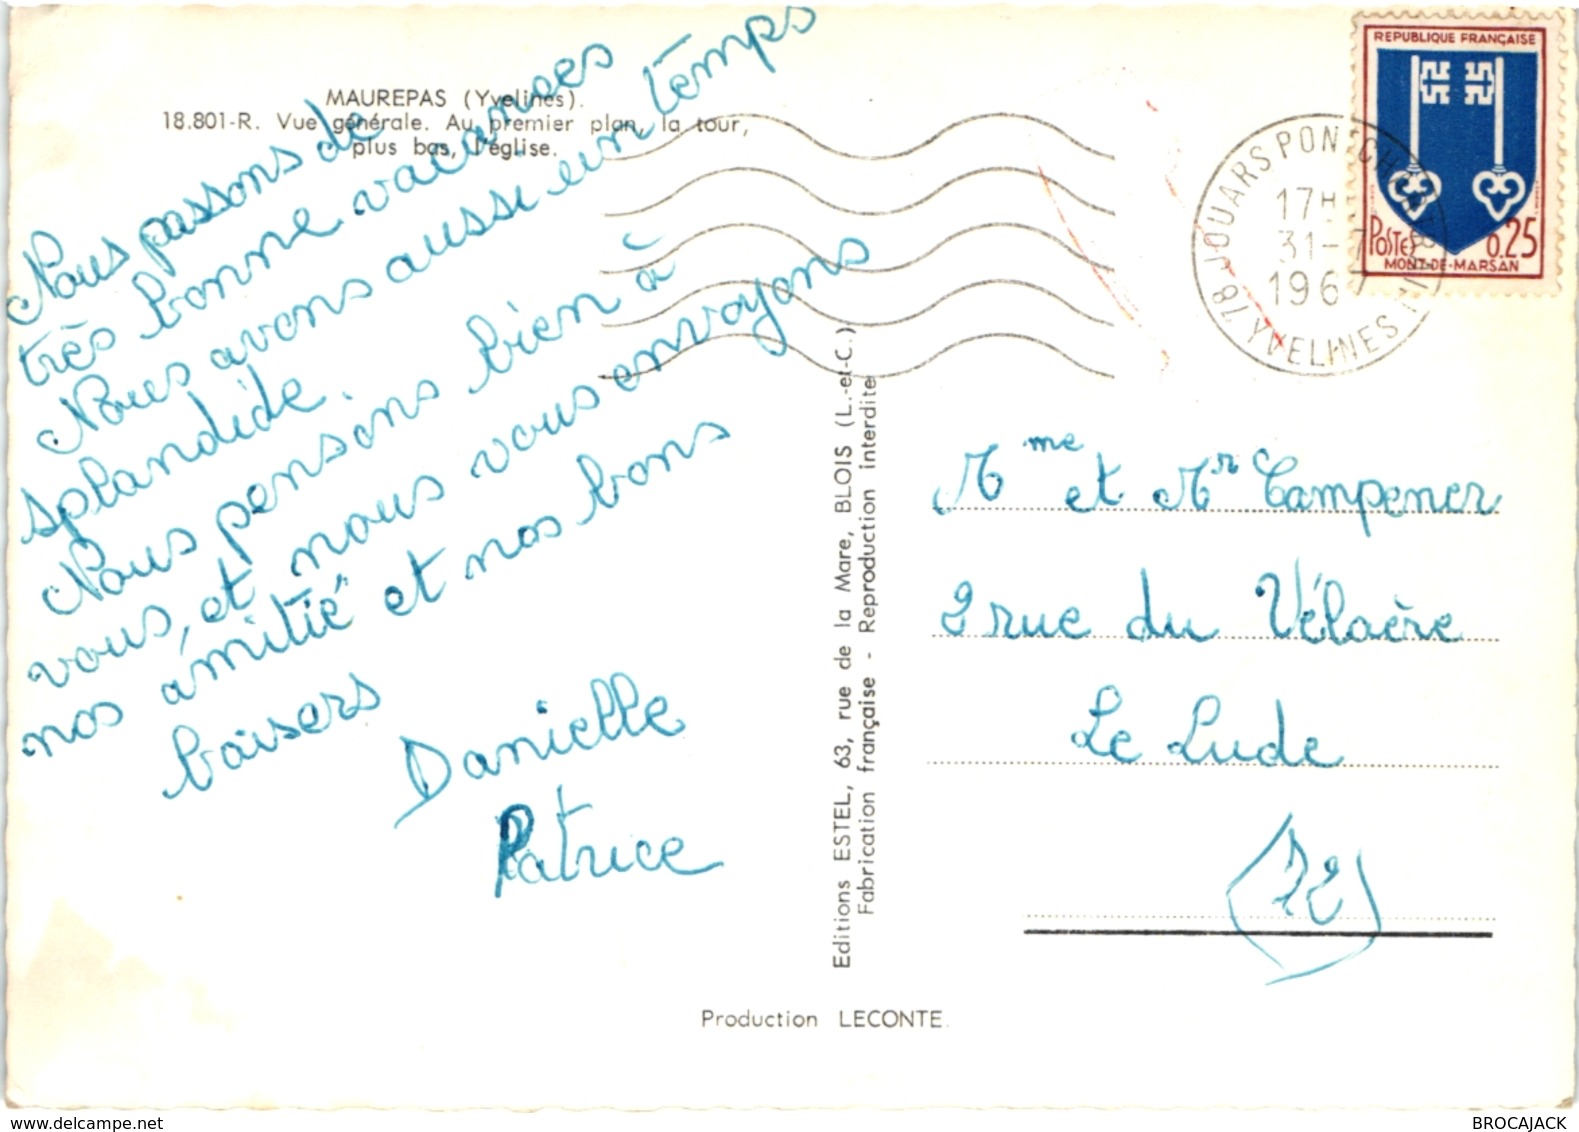 MAUREPAS (Yvelines).
18.801-R. Vue générale. Au premier plan, la tour,
plus bas, l'église.
Nous passons de
très bonne vacances
Nous avons aussi un temps
splandide.
Nous pensons bien à
vous, et nous vous envoyons
nos amitié et nos bons
baisers
Danielle
Patrice
Editions ESTEL, 63, rue de la Mare, BLOIS (L.-et-C.)
Fabrication française - Reproduction interdite
Production LECONTE.
REPUBLIQUE FRANÇAISE
POSTES 0,25
MONT-DE-MARSAN
78 JOUARS PONTCHARTRAIN
17H
31-7
196
YVELINES
Mme et Mr Campener
2 rue du Vélaère
Le Lude
72
www.delcampe.net
BROCAJACK